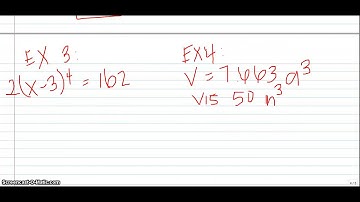 EX 3:
2(x-3)⁴ = 162
EX 4:
V = 7.663 a³
V is 50 in³
Screencast-O-Matic.com